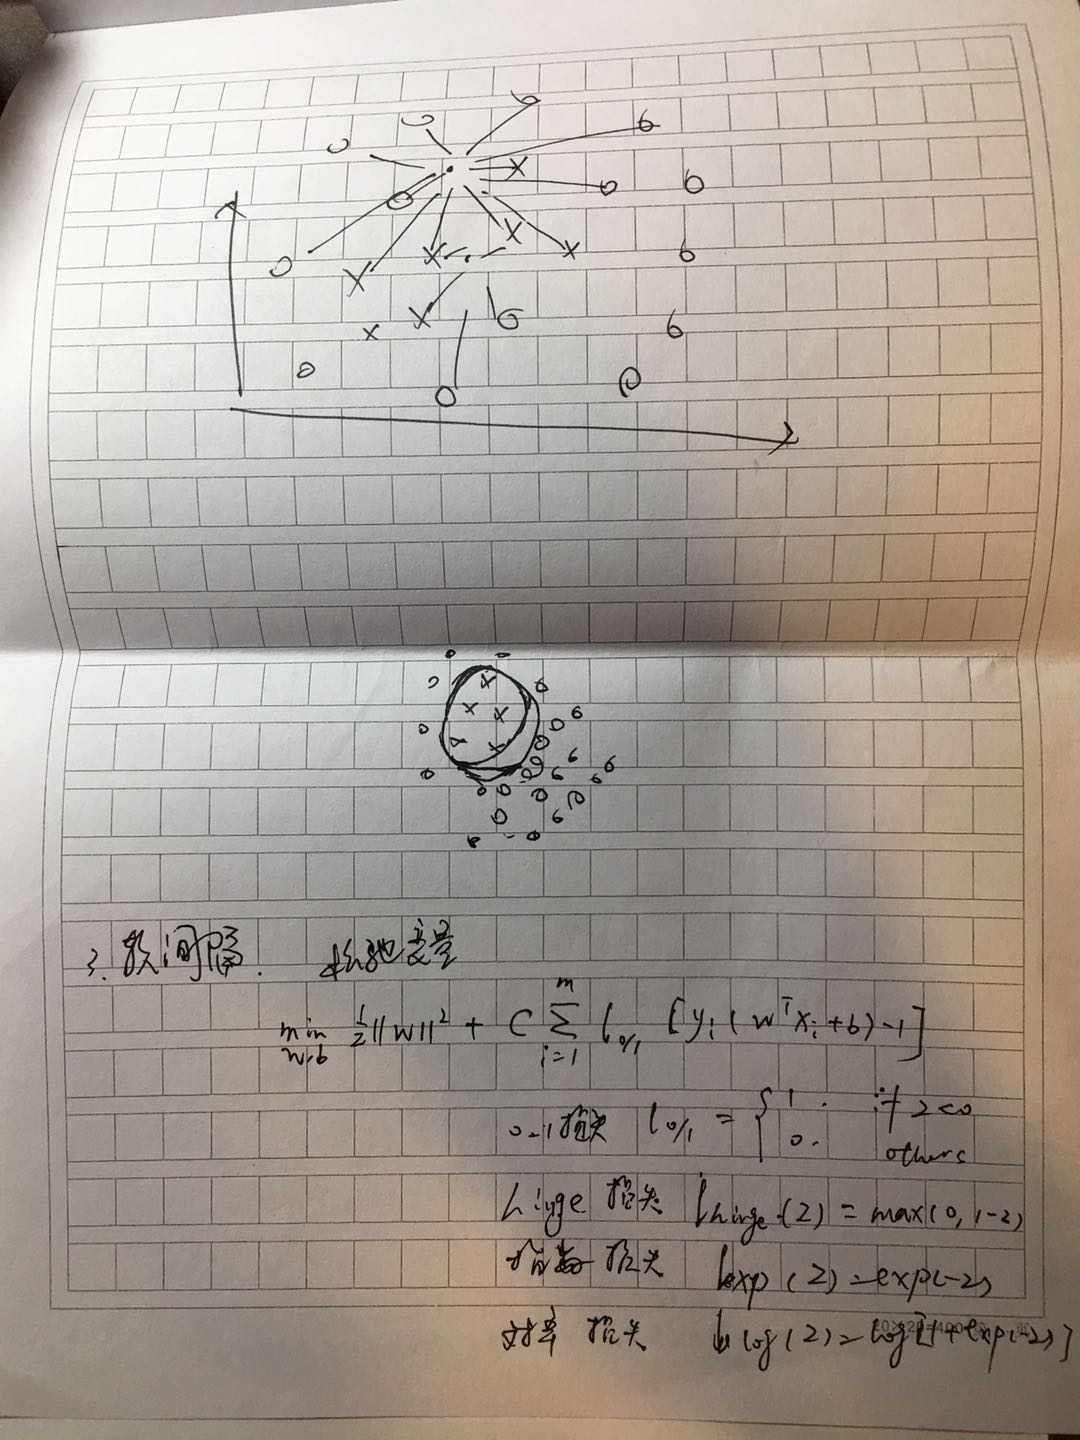 3. 软间隔. 松弛变量
min w,b ½||w||² + C Σ_{i=1}^{m} l_{0/1} [y_i(w^T x_i + b) - 1]
0-1损失 l_{0/1} = { 1. if z<0
0. others
hinge 损失 l_hinge(z) = max(0, 1-z)
指数 损失 l_exp(z) = exp(-z)
对率 损失 l_log(z) = log[1+exp(-z)]